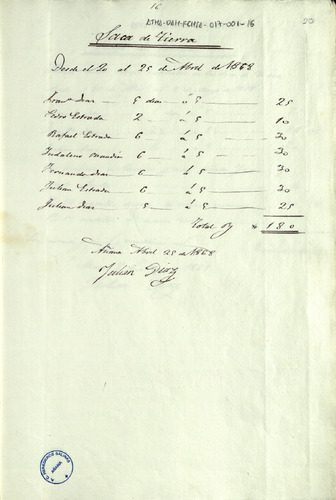 16
ATHA-DAH-FCHIA-017-001-16
Saca de Tierra
Desde el 20 al 25 de Abril de 1868
Diaz 5 dias á 5 25
Pedro Estrada 2 á 5 10
Rafael Estrada 6 á 5 30
Indalecio 6 á 5 30
Fernando Diaz 6 á 5 30
Julian Estrada 6 á 5 30
Julian Diaz 5 á 5 25
Total 180
Añana Abril 25 de 1868
Julian Diaz
AÑANA